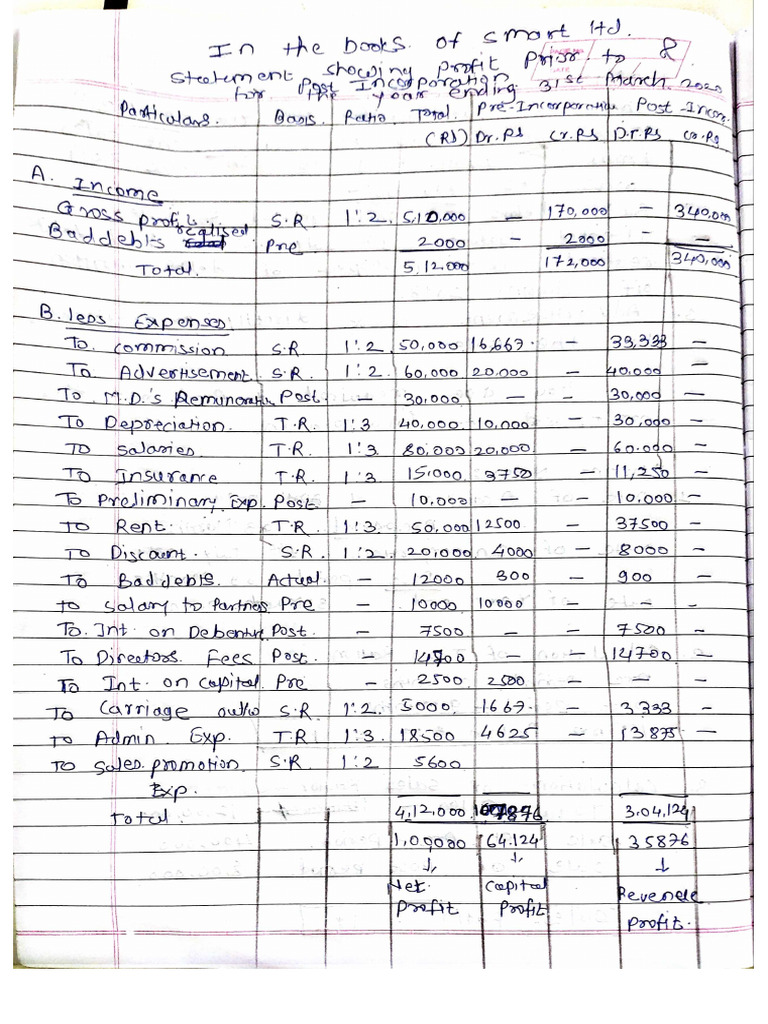 In the books of Smart ltd.
Statement showing Profit Prior to &
Post Incorporation
for the year ending 31st March 2020
Particulars. Basis. Ratio Total Pre-Incorporation Post-Incon.
(RS) Dr.RS Cr.RS D.r.RS Cr.RS
A. Income
Gross profit S.R 1:2 5,10,000 – 170,000 – 340,000
Baddebts realised Pre 2000 – 2000 – –
Total. 5,12.000 172,000 340,000
B. less Expenses
To commission S.R 1:2 50,000 16,667 – 33,333 –
To Advertisement S.R. 1:2 60,000 20,000 – 40,000 –
To M.D.'s Remuneration Post. – 30,000 – – 30,000 –
To Depreciation. T.R 1:3 40,000 10,000 – 30,000 –
To Salaries. T.R 1:3 80,000 20,000 – 60.000 –
To Insurance T.R 1:3 15,000 3750 – 11,250 –
To Preliminary Exp. Post – 10,000 – – 10,000 –
To Rent. T.R 1:3. 50,000 12500 – 37500 –
To Discount. S.R. 1:2 20,000 4000 – 8000 –
To Baddebts. Actual. – 12000 300 – 900 –
to Salary to Partners Pre – 10000 10000 – – –
To. Int on Debenture Post. – 7500 – – 7500 –
To Directors. Fees Post. – 14700 – – 14700 –
To Int. on capital Pre – 2500 2500 – – –
To Carriage outw S.R. 1:2. 5000. 1667. – 3333 –
To Admin Exp. T.R. 1:3. 18500 4625 – 13875 –
To Sales. promotion S.R. 1:2 5600
Exp.
Total. 4,12,000 3,04,124
1,00000 64,124 35876
Net Profit
Capital Profit
Revenue Profit.